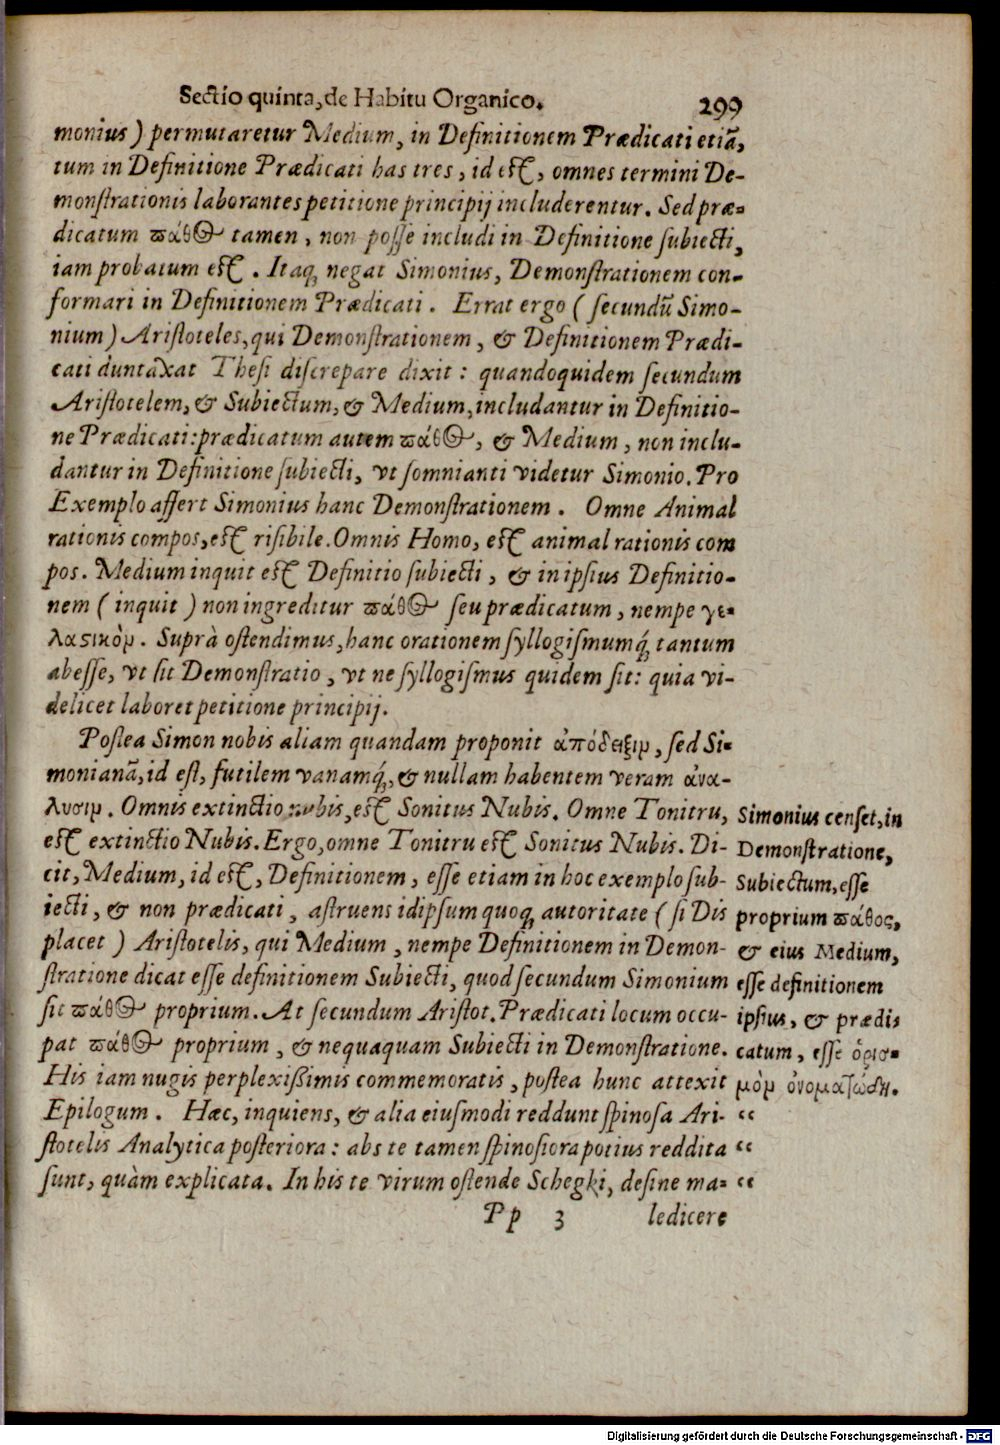 Sectio quinta, de Habitu Organico. 299
monius) permutaretur Medium, in Definitionem Prædicati etiā,
tum in Definitione Prædicati has tres, id est, omnes termini De-
monſtrationis laborantes petitione principij includerentur. Sed præ-
dicatum πάθος tamen, non poſſe includi in Definitione ſubiecti,
iam probatum est. Itaq; negat Simonius, Demonſtrationem con-
formari in Definitionem Prædicati. Errat ergo (ſecundū Simo-
nium) Ariſtoteles, qui Demonſtrationem, & Definitionem Prædi-
cati duntaxat Theſi diſcrepare dixit: quandoquidem ſecundum
Ariſtotelem, & Subiectum, & Medium, includantur in Definitio-
ne Prædicati: prædicatum autem πάθος, & Medium, non inclu-
dantur in Definitione ſubiecti, vt ſomnianti videtur Simonio. Pro
Exemplo affert Simonius hanc Demonſtrationem. Omne Animal
rationis compos, est riſibile. Omnis Homo, est animal rationis com
pos. Medium inquit est Definitio ſubiecti, & in ipſius Definitio-
nem (inquit) non ingreditur πάθος ſeu prædicatum, nempe γε-
λαστικὸν. Suprà oſtendimus, hanc orationem ſyllogiſmumq́; tantum
abeſſe, vt ſit Demonſtratio, vt ne ſyllogiſmus quidem ſit: quia vi-
delicet laboret petitione principij.
Poſtea Simon nobis aliam quandam proponit ἀπόδειξιν, ſed Si-
monianā, id eſt, futilem vanamq́;, & nullam habentem veram ἀνα-
λυσιν. Omnis extinctio nubis, est Sonitus Nubis. Omne Tonitru,
est extinctio Nubis. Ergo, omne Tonitru est Sonitus Nubis. Di-
cit, Medium, id est, Definitionem, eſſe etiam in hoc exemplo ſub-
iecti, & non prædicati, aſtruens idipſum quoq; autoritate (ſi Dis
placet) Ariſtotelis, qui Medium, nempe Definitionem in Demon-
ſtratione dicat eſſe definitionem Subiecti, quod ſecundum Simonium
ſit πάθος proprium. At ſecundum Ariſtot. Prædicati locum occu-
pat πάθος proprium, & nequaquam Subiecti in Demonſtratione.
His iam nugis perplexißimis commemoratis, poſtea hunc attexit
Epilogum. Hæc, inquiens, & alia eiuſmodi reddunt ſpinoſa Ari-
ſtotelis Analytica poſteriora: abs te tamen ſpinoſiora potius reddita
ſunt, quàm explicata. In his te virum oſtende Schegki, deſine ma-
Pp 3 ledicere
Simonius cenſet, in
Demonſtratione,
Subiectum, eſſe
proprium πάθος,
& eius Medium,
eſſe definitionem
ipſius, & prædi
catum, eſſe ὁρισ-
μὸν ὀνοματώδη.
“
“
“
Digitalisierung gefördert durch die Deutsche Forschungsgemeinschaft - DFG